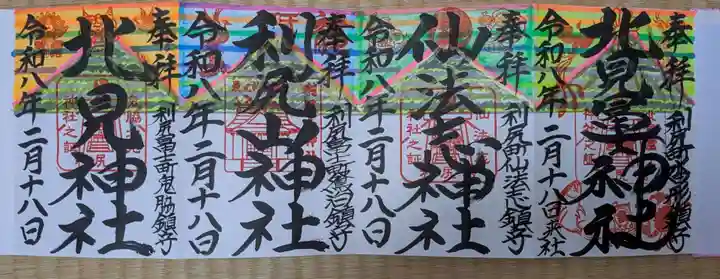 奉拝
北見冨士神社
利尻町沓形鎮守
令和八年二月十八日来社
奉拝
仙法志神社
利尻町仙法志鎮守
令和八年二月十八日
神社之証
奉拝
利尻山神社
利尻冨士町鴛泊鎮守
令和八年二月十八日
奉拝
北見神社
利尻冨士町鬼脇鎮守
令和八年二月十八日
神社之証